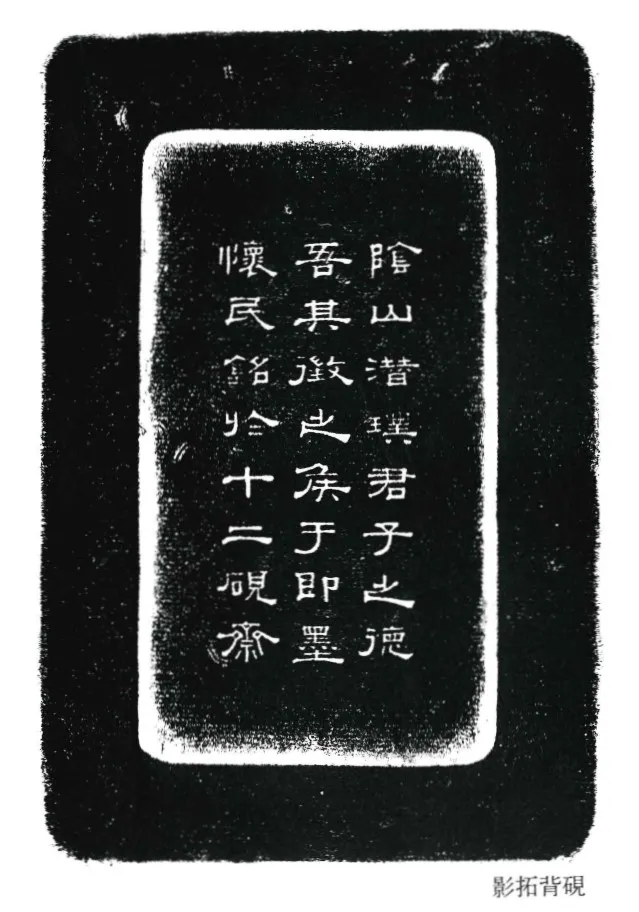 陰山潛璞君子之德
吾其徵之矦于即墨
懷民銘於十二硯齋
硯背拓影